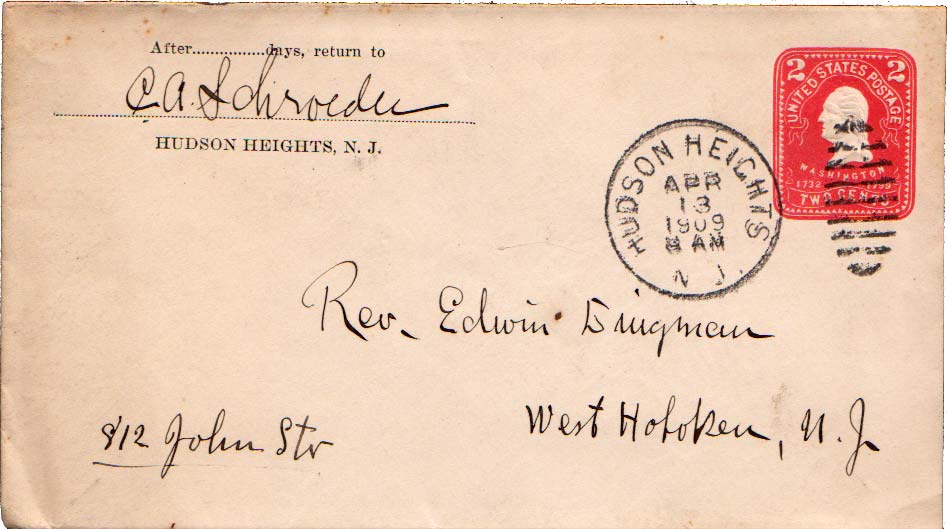 After...............days, return to
C. A. Schroeder
HUDSON HEIGHTS, N. J.
2 2
UNITED STATES POSTAGE
WASHINGTON
1732 1799
TWO CENTS
HUDSON HEIGHTS
APR
13
1909
8 AM
N J.
Rev. Edwin Dingman
West Hoboken, N. J.
812 John Str